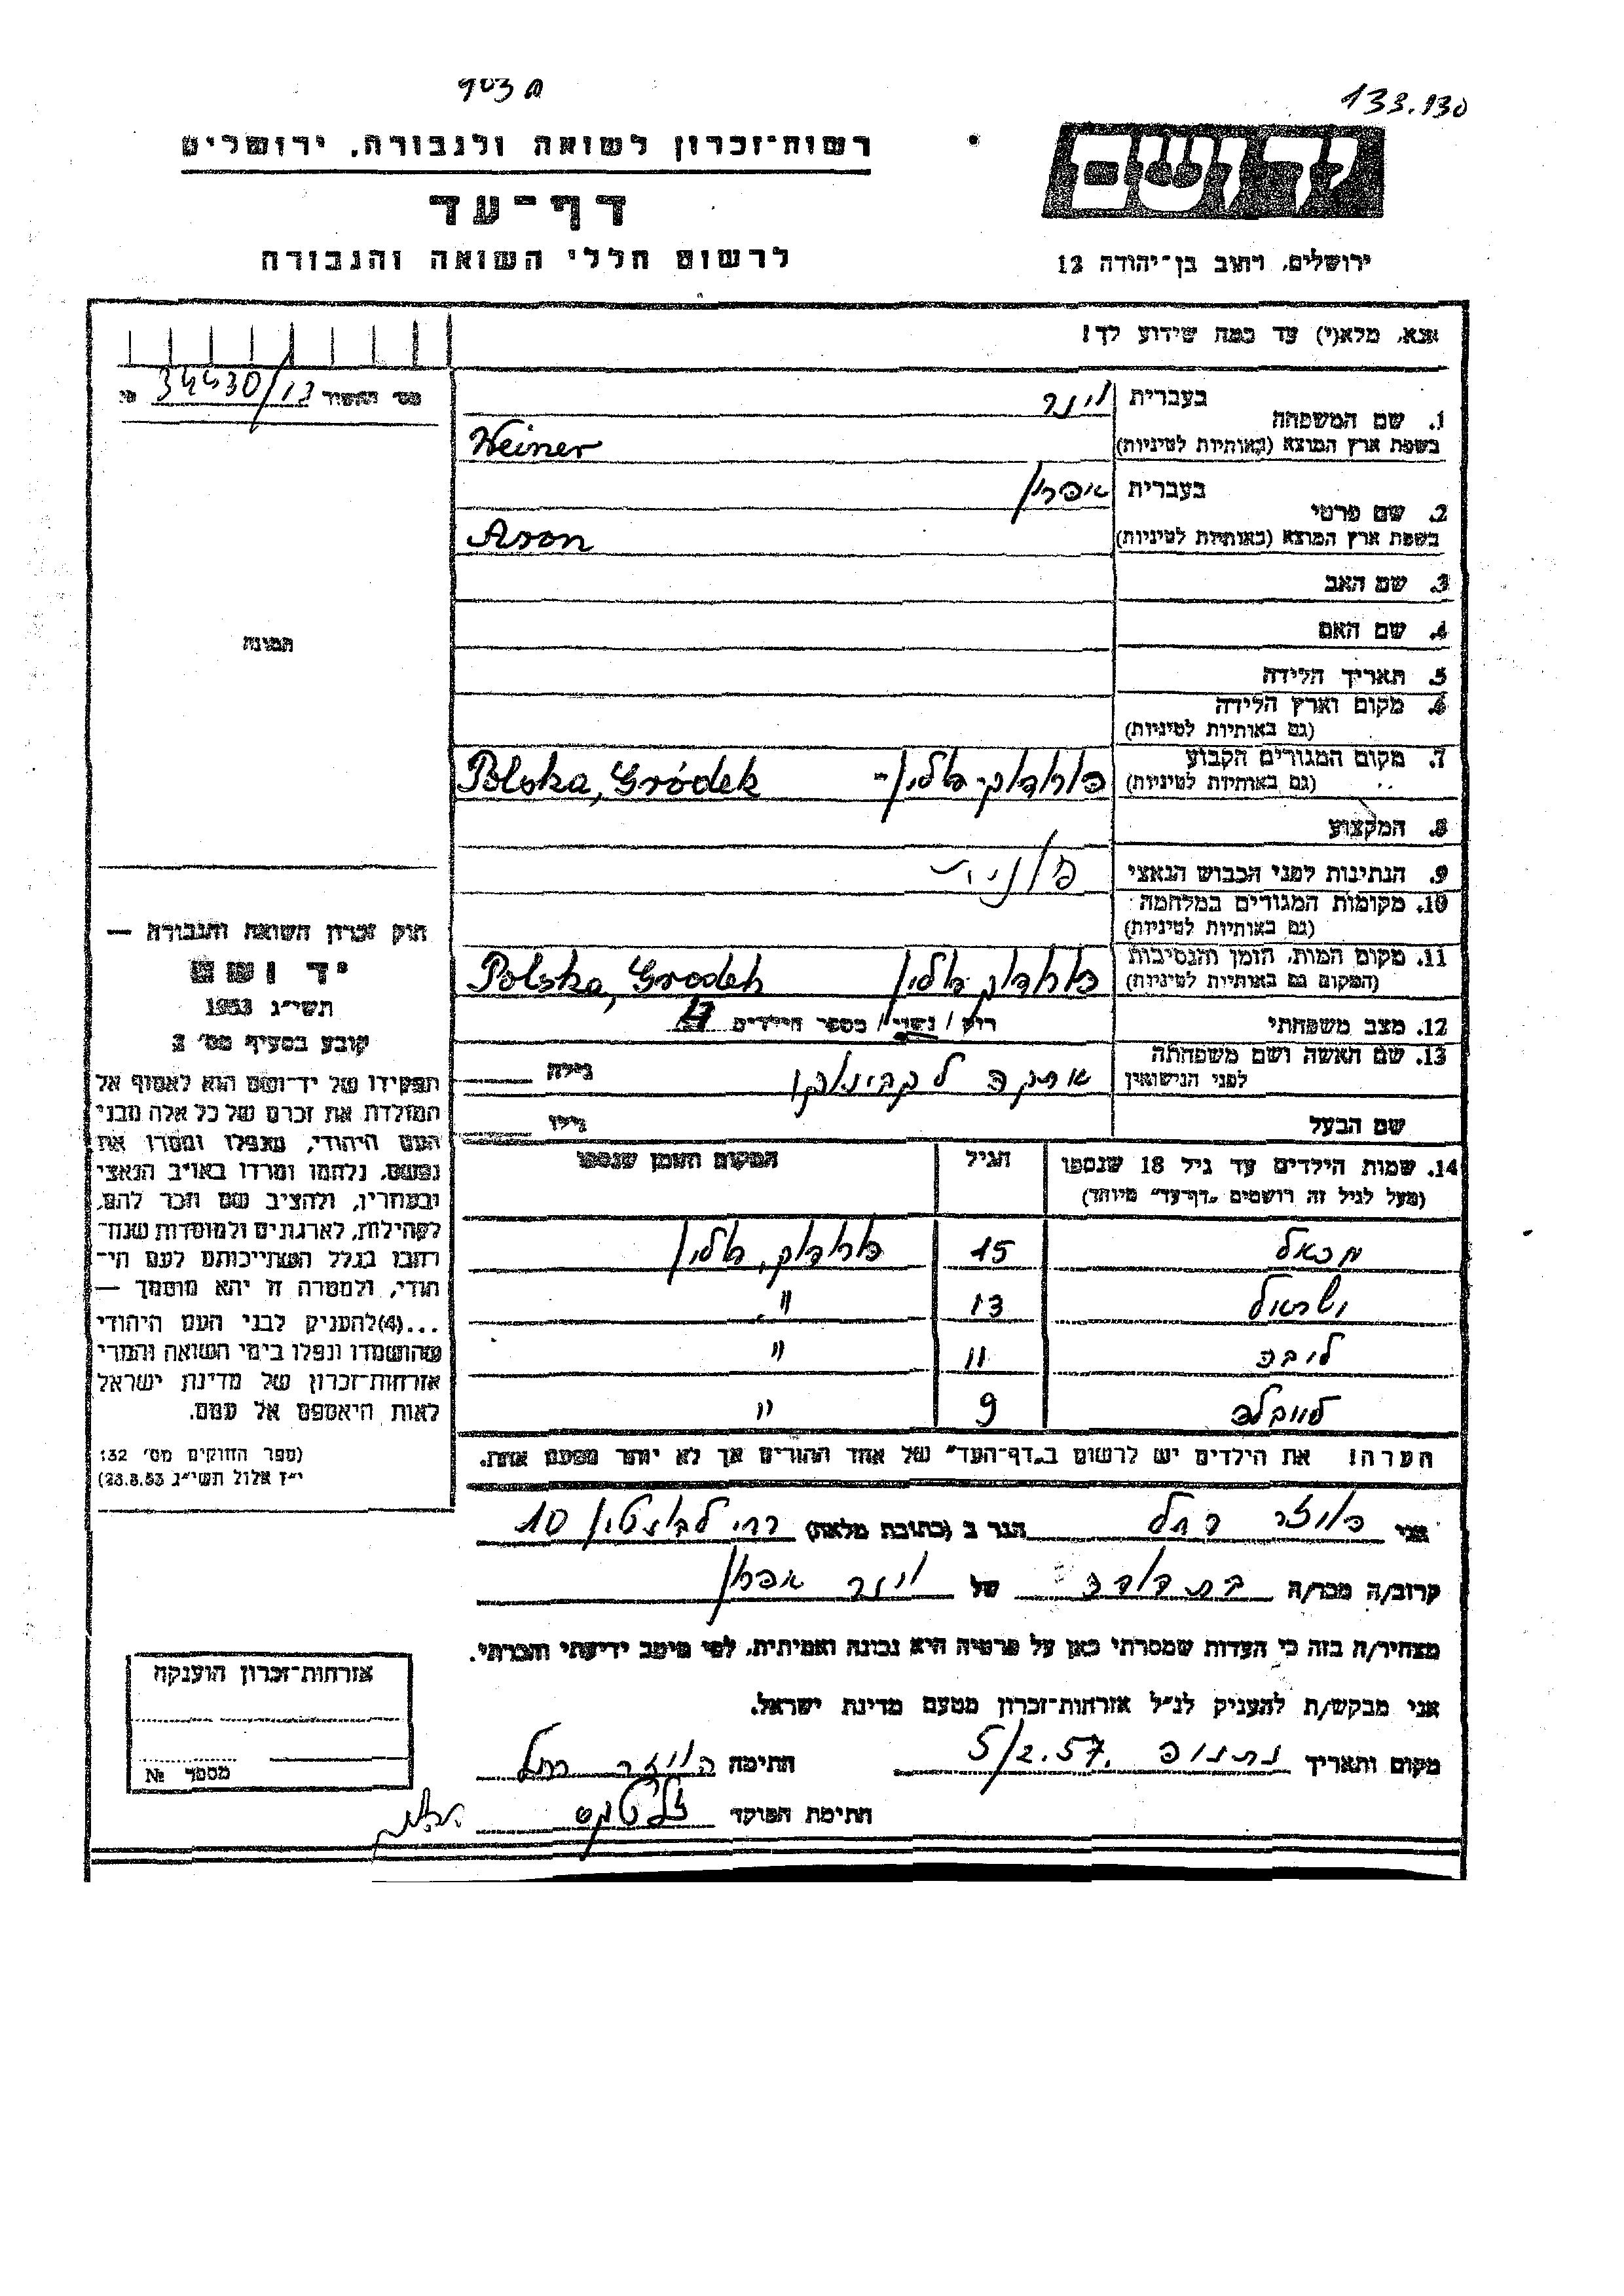 133.130
רשות־זכרון לשואה ולגבורה, ירושלים
דף־עד
לרשום חללי השואה והגבורה
יד ושם
ירושלים, רחוב בן־יהודה 12
אנא, מלא(י) עד כמה שידוע לך!
מס' האשור 34430/13
1. שם המשפחה בעברית וינר
בשפת ארץ המוצא (באותיות לטיניות) Weiner
2. שם פרטי בעברית
בשפת ארץ המוצא (באותיות לטיניות) Aron
3. שם האב
4. שם האם
5. תאריך הלידה
6. מקום וארץ הלידה
(גם באותיות לטיניות)
7. מקום המגורים הקבוע Polska, Gródek
(גם באותיות לטיניות)
8. המקצוע
9. הנתינות לפני הכבוש הנאצי
10. מקומות המגורים במלחמה
(גם באותיות לטיניות)
11. מקום המות, הזמן והנסיבות Polska, Grodek
(המקום גם באותיות לטיניות)
12. מצב משפחתי רוק / נשוי / מספר הילדים
13. שם האשה ושם משפחתה
לפני הנישואין גילה
שם הבעל גילו
14. שמות הילדים עד גיל 18 שנספו הגיל המקום והזמן שנספו
(מעל לגיל זה רושמים „דף־עד" מיוחד)
מכאל 15
ישראל 13 "
ליבה 11 "
9 "
הערה! את הילדים יש לרשום ב„דף־העד" של אחד ההורים אך לא יותר מפעם אחת.
אני רחל הגר ב (כתובת מלאה) 10
קרוב/ה מכר/ה בת דודה של וינר
מצהיר/ה בזה כי העדות שמסרתי כאן על פרטיה היא נכונה ואמיתית, לפי מיטב ידיעתי והכרתי.
אני מבקש/ת להעניק לנ"ל אזרחות־זכרון מטעם מדינת ישראל.
מקום ותאריך נתניה 5/2.57 חתימה רחל
חתימת הפוקד
תמונה
חוק זכרון השואה והגבורה —
יד ושם
תשי"ג 1953
קובע בסעיף מס' 2
תפקידו של יד־ושם הוא לאסוף אל
המולדת את זכרם של כל אלה מבני
העם היהודי, שנפלו ומסרו את
נפשם, נלחמו ומרדו באויב הנאצי
ובעוזריו, ולהציב שם וזכר להם,
לקהילות, לארגונים ולמוסדות שנח־
רבו בגלל השתייכותם לעם הי־
הודי, ולמטרה זו יהא מוסמך —
...(4)להעניק לבני העם היהודי
שהושמדו ונפלו בימי השואה והמרי
אזרחות־זכרון של מדינת ישראל
לאות היאספם אל עמם.
(ספר החוקים מס' 132:
י"ז אלול תשי"ג 28.8.53)
אזרחות־זכרון הוענקה
מספר №